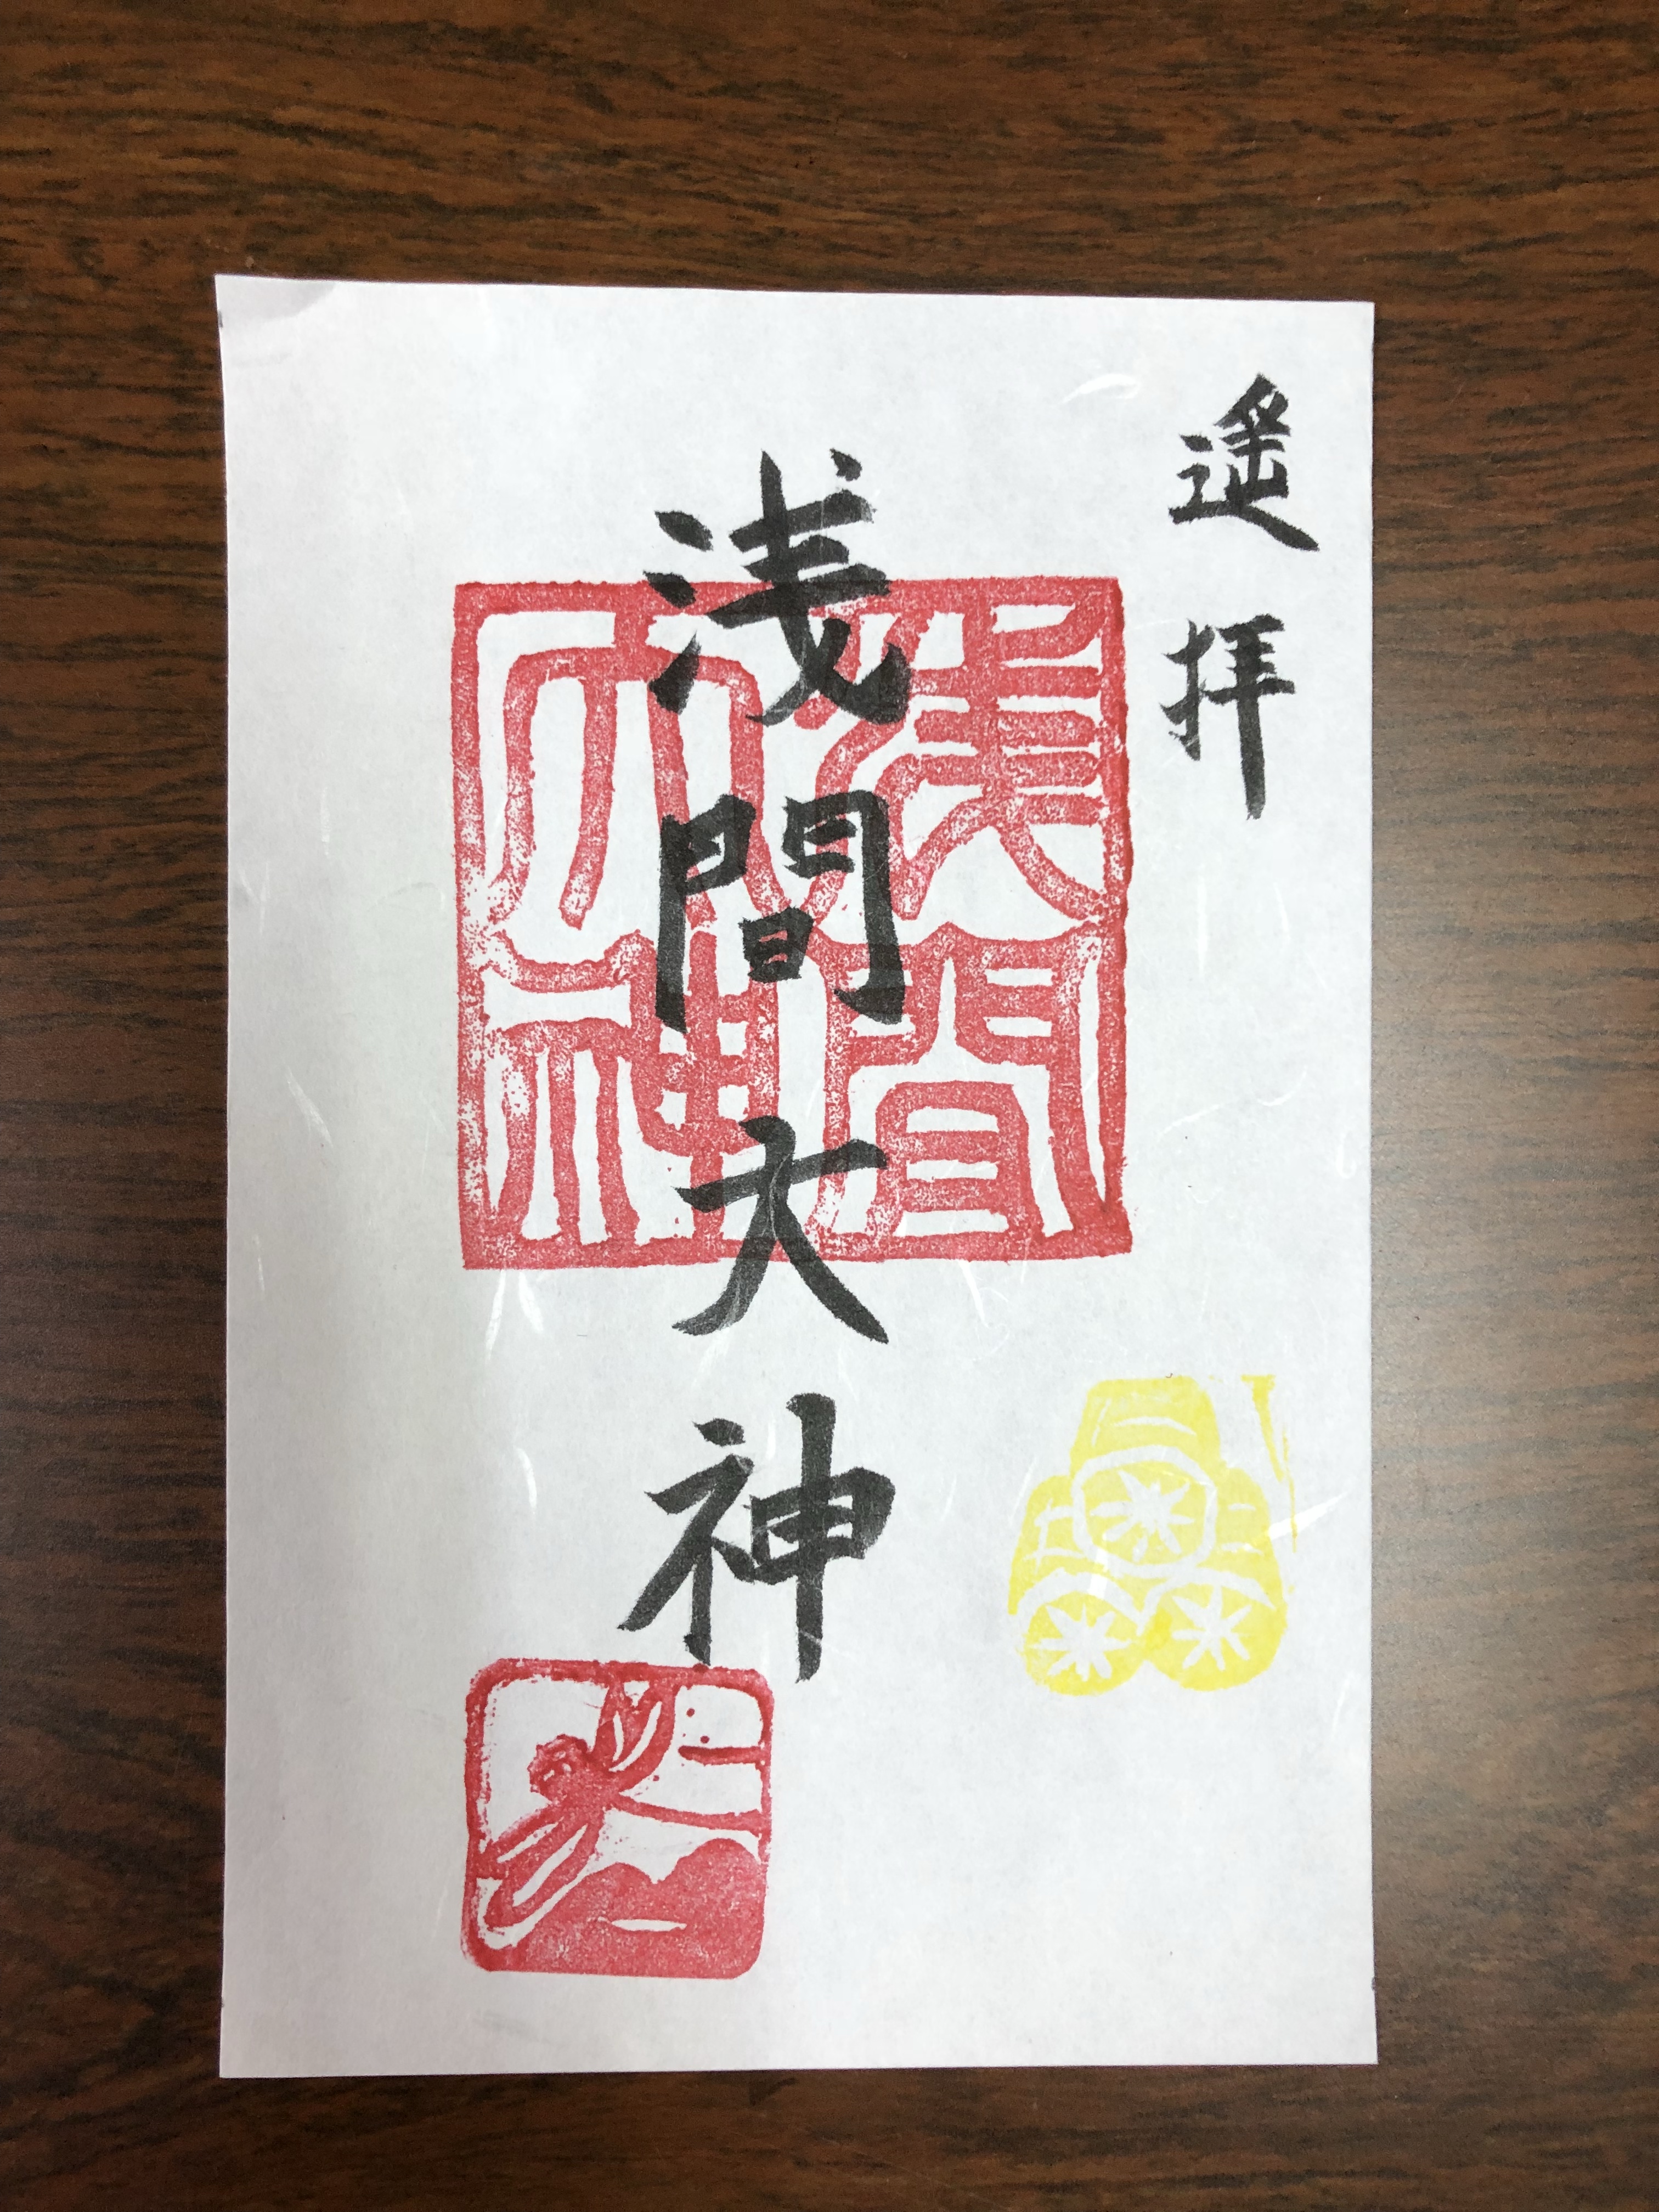 遥拝
浅間大神
浅間
大神